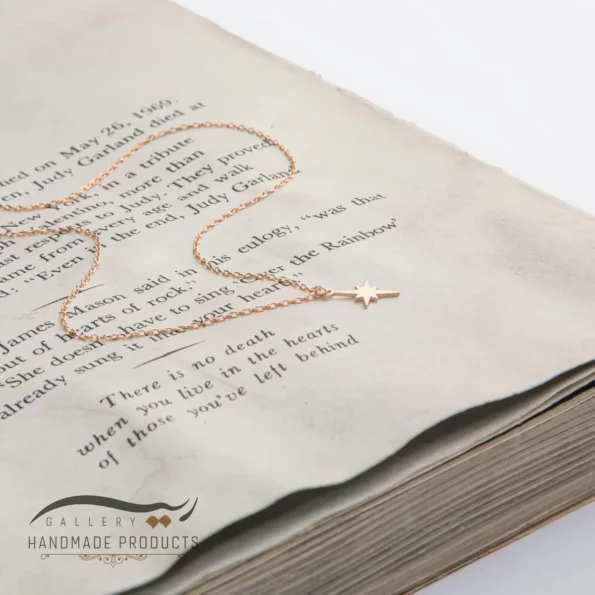 ned on May 26, 1969.
en, Judy Garland died at
New York, in a tribute
Valentino, more than
last respects to Judy. They proved
ame from every age and walk
d. "Even in the end, Judy Garland
James Mason said in his eulogy, "was that
out of hearts of rock."
"She doesn't have to sing 'Over the Rainbow'
already sung it into your hearts."
There is no death
when you live in the hearts
of those you've left behind
GALLERY
HANDMADE PRODUCTS